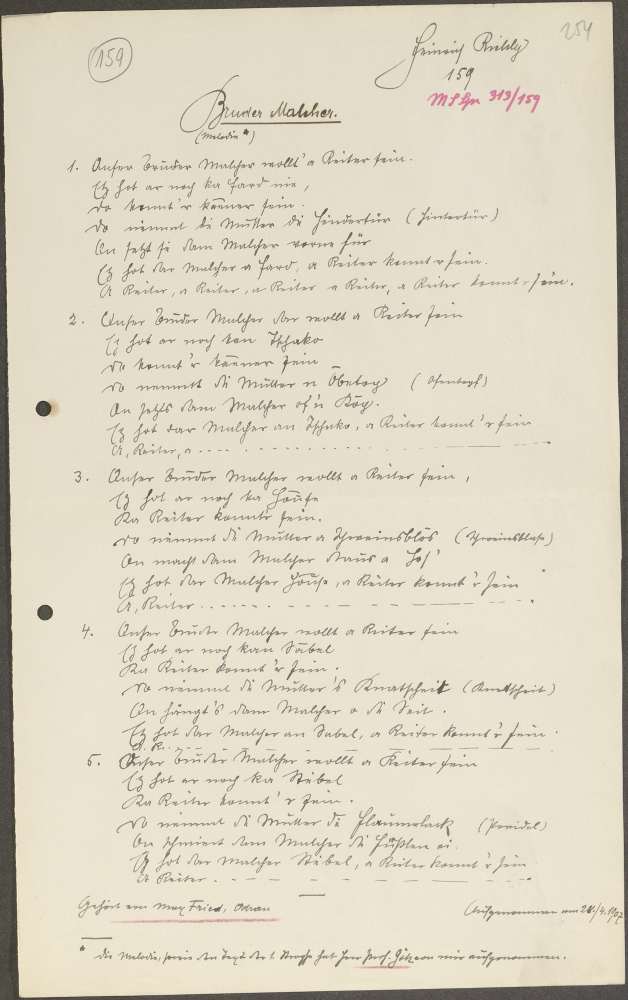 159
254
Heinrich
159
313/159
Bruder Malcher.
(Melodie *)
1. Onser Bruder Malcher wollt' a Reiter sein.
Ez hot ar noch ka Fard nie,
do konnt'r känner sein.
do nimmt di Mutter di Hindertür (Hintertür)
On setzt se dam Malcher vorne für
Ez hot dar Malcher a Fard, a Reiter konnt r sein.
A Reiter, a Reiter, a Reiter a Reiter, a Reiter konnt r sein.
2. Onser Bruder Malcher dar wollt a Reiter sein
Ez hot ar noch kan Tschako
do konnt'r känner sein
do nemmt di Mutter n Öbetop (Ofentopf)
On setzts dam Malcher of'n Kop.
Ez hot dar Malcher an Tschako, a Reiter konnt'r sein
A, Reiter, a ----
3. Onser Bruder Malcher wollt a Reiter sein,
Ez hot ar noch ka House
Ka Reiter konntr sein.
do nimmt di Mutter a Schweinsblos (Schweinsblase)
On macht dam Malcher draus a Hos'
Ez hot dar Malcher House, a Reiter konnt'r sein
A, Reiter.....
4. Onser Bruder Malcher wollt a Reiter sein
Ez hot ar noch kan Sabel
Ka Reiter konnt'r sein.
do nimmt di Mutter's Knatscheit (Knetscheit)
On hängt's dam Malcher o di Seit.
Ez hot dar Malcher an Sabel, a Reiter konnt'r sein.
A. R. ---
5. Onser Bruder Malcher wollt a Reiter sein
Ez hot ar noch ka Stebel
Ka Reiter konnt'r sein.
do nimmt di Mutter di Flaumelack (Povidel)
On schmiert dam Malcher di Füßlen ei.
Ez hot dar Malcher Stebel, a Reiter konnt'r sein
A Reiter.
Gehört von Max Fried, Odrau
Aufgenommen am
* Die Melodie, sowie den Text der 1. Strophe hat Herr Prof. Götz von mir aufgenommen.